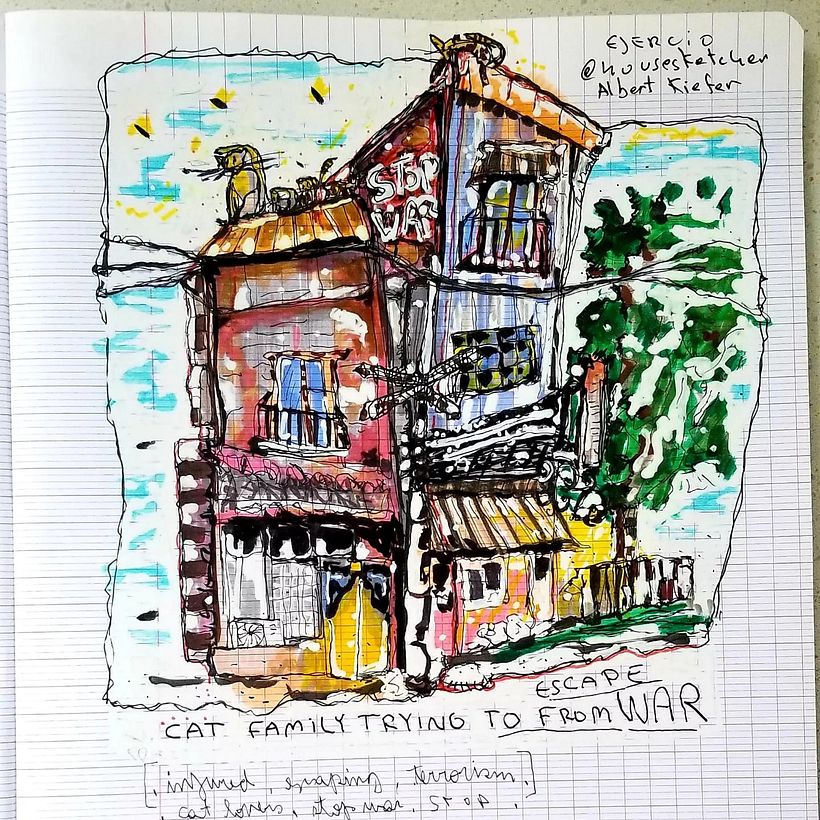 EJERCiO
@housesketcher
Albert Kiefer
STOP
WAR
ESCAPE
CAT FAMiLY TRYING TO FROM WAR
[. injured, escaping, terrorism.]
. cat lovers, stop war, STOP .